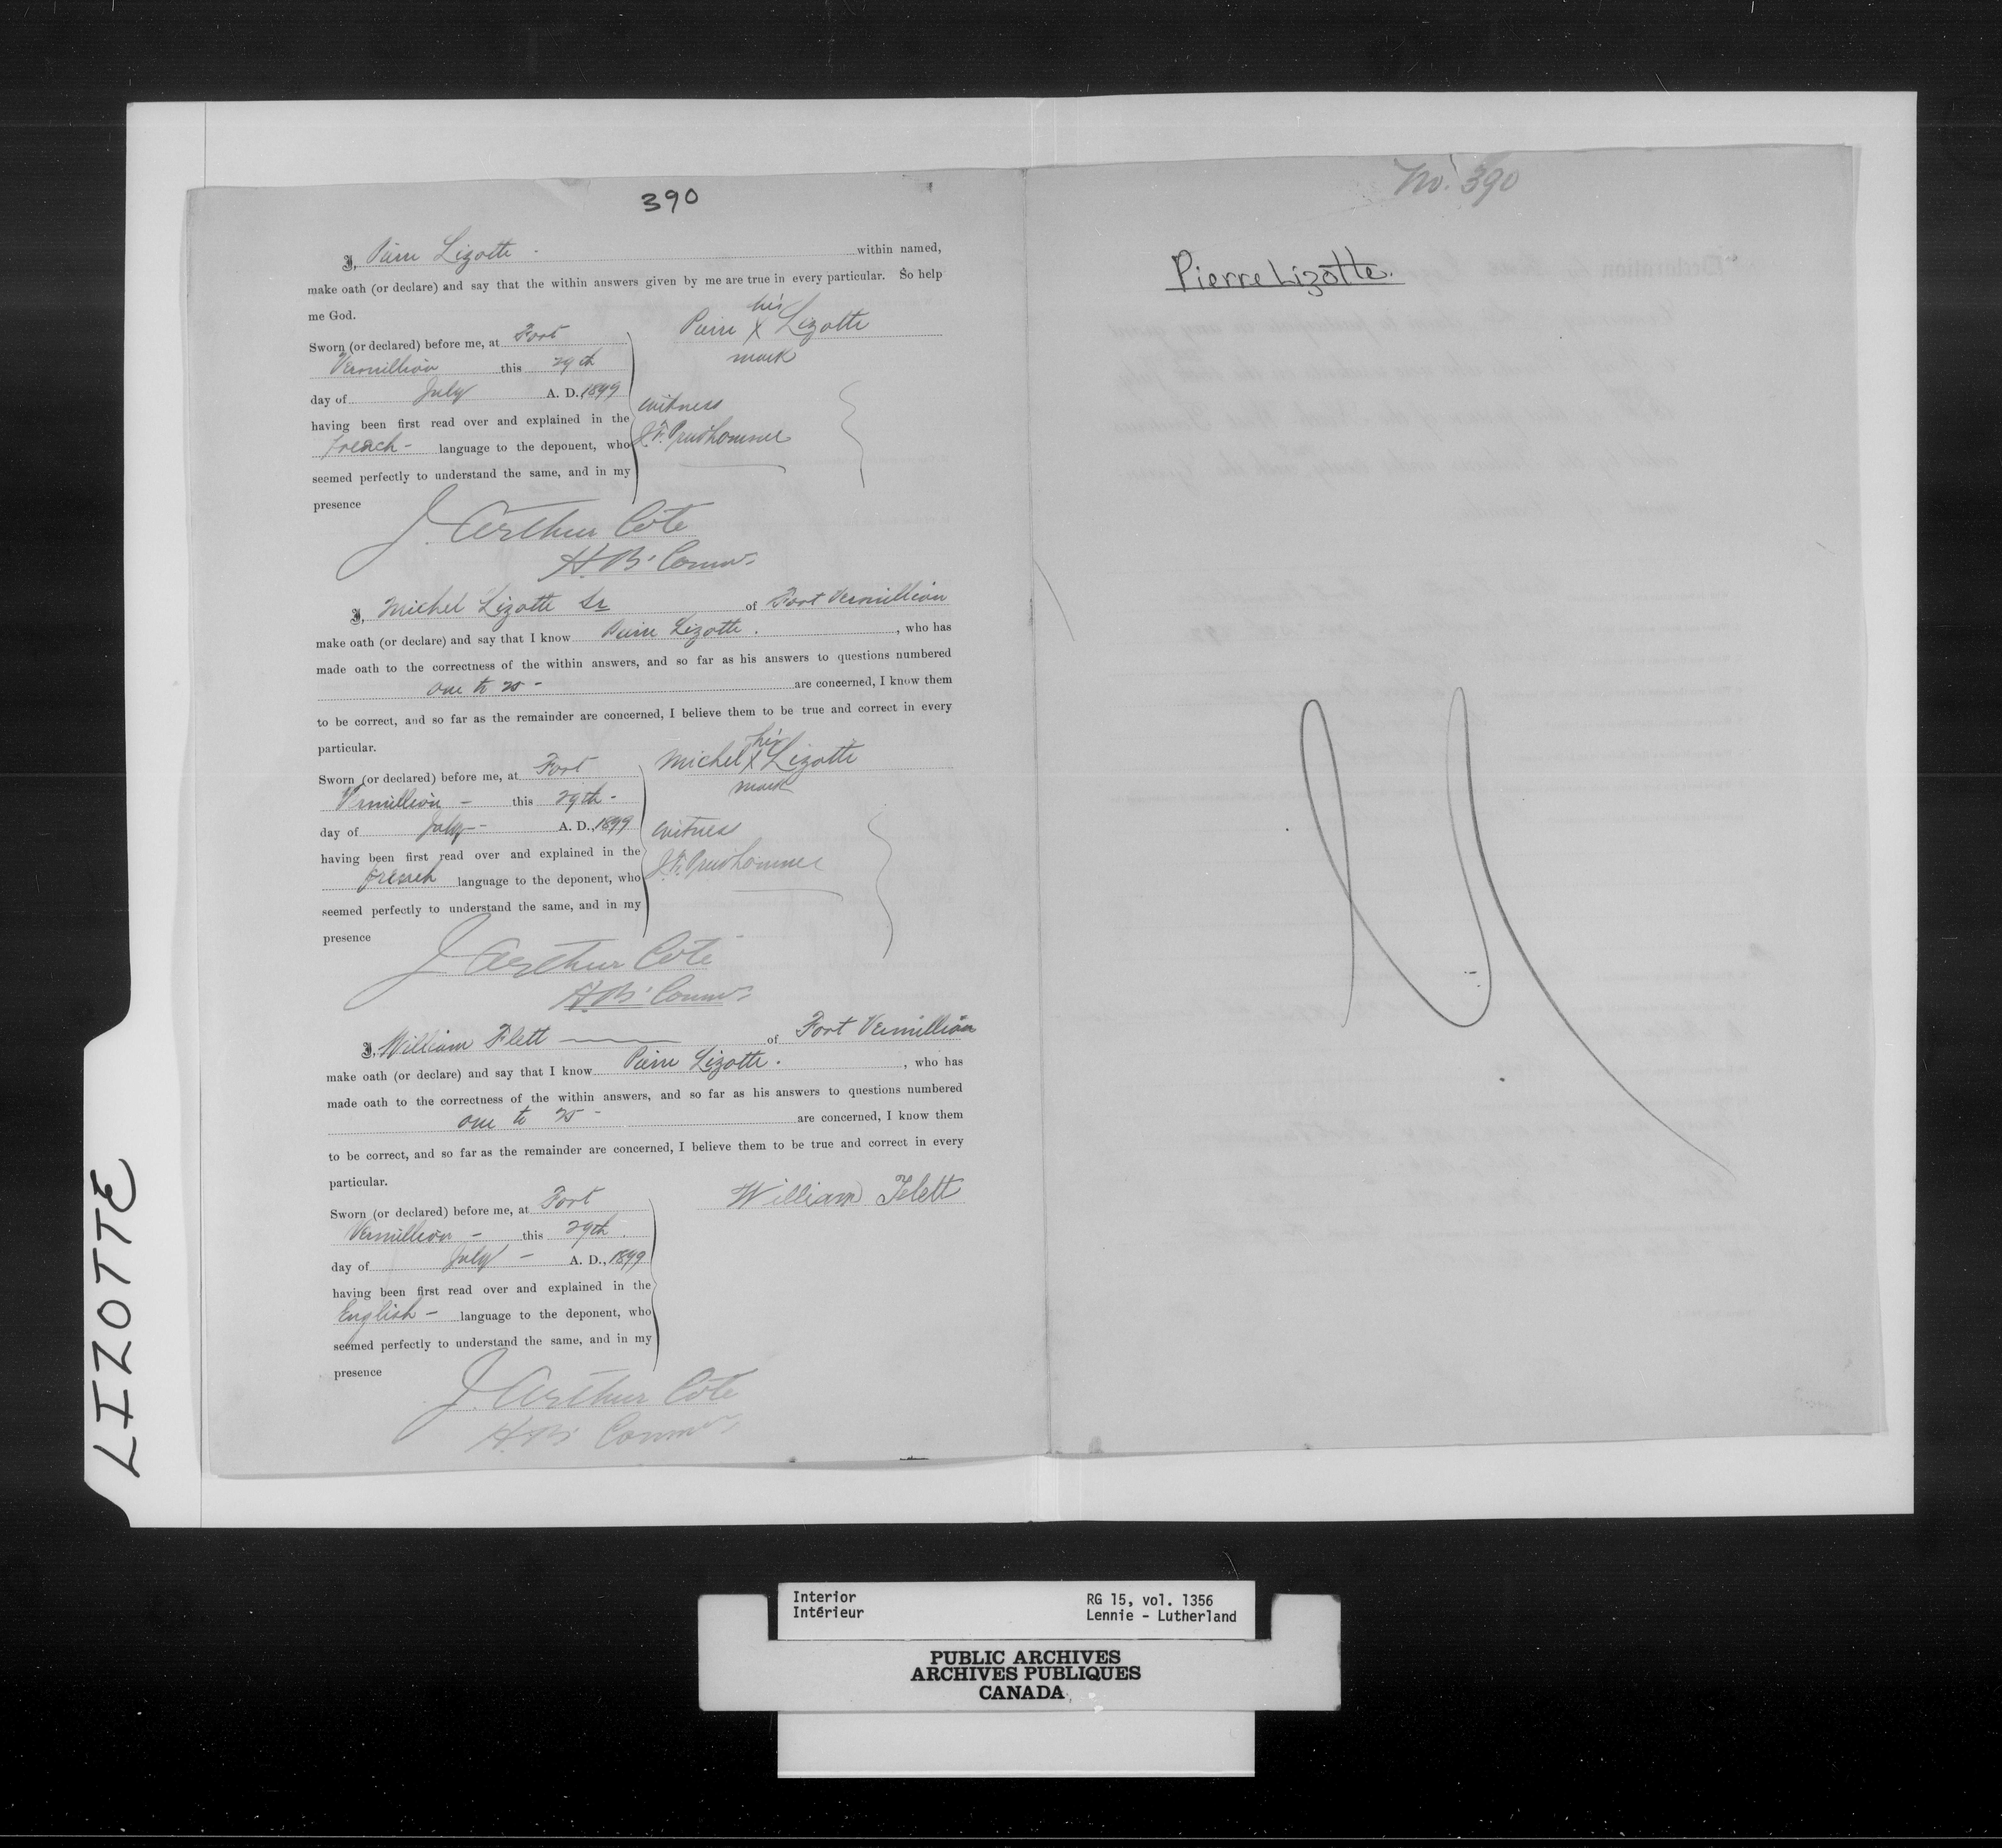 390
I, Pierre Lizotte within named,
make oath (or declare) and say that the within answers given by me are true in every particular. So help
me God.
Sworn (or declared) before me, at Fort
Vermillion this 29th
day of July A. D. 1899
having been first read over and explained in the
French - language to the deponent, who
seemed perfectly to understand the same, and in my
presence
his
Pierre X Lizotte
mark
witness
J. F. Prudhomme
J. Arthur Coté
H. B. Commr.
I, Michel Lizotte Sr of Fort Vermillion
make oath (or declare) and say that I know Pierre Lizotte. , who has
made oath to the correctness of the within answers, and so far as his answers to questions numbered
one to 20 - are concerned, I know them
to be correct, and so far as the remainder are concerned, I believe them to be true and correct in every
particular.
Sworn (or declared) before me, at Fort
Vermillion - this 29th -
day of July - A. D., 1899
having been first read over and explained in the
French language to the deponent, who
seemed perfectly to understand the same, and in my
presence
his
Michel X Lizotte
mark
witness
J. F. Prudhomme
J. Arthur Coté
H. B. Commr.
I, William Flett of Fort Vermillion
make oath (or declare) and say that I know Pierre Lizotte. , who has
made oath to the correctness of the within answers, and so far as his answers to questions numbered
one to - are concerned, I know them
to be correct, and so far as the remainder are concerned, I believe them to be true and correct in every
particular.
Sworn (or declared) before me, at Fort
Vermillion - this 29th.
day of July - A. D., 1899
having been first read over and explained in the
English - language to the deponent, who
seemed perfectly to understand the same, and in my
presence
William Flett
J. Arthur Coté
H. B. Commr.
No. 390
Pierre Lizotte.
LIZOTTE
Interior
Intérieur
RG 15, vol. 1356
Lennie - Lutherland
PUBLIC ARCHIVES
ARCHIVES PUBLIQUES
CANADA